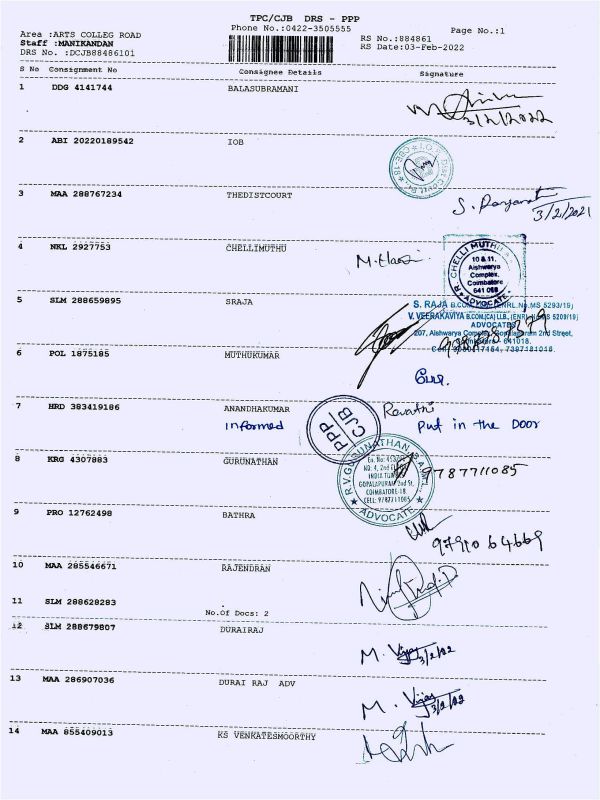 TPC/CJB DRS - PPP
Phone No.:0422-3505555
Page No.:1
Area :ARTS COLLEG ROAD
Staff :MANIKANDAN
DRS No. :DCJB88486101
RS No.:884861
RS Date:03-Feb-2022
S No Consignment No Consignee Details Signature
1 DDG 4141744 BALASUBRAMANI
3/2/2022
2 ABI 20220189542 IOB
3 MAA 288767234 THEDISTCOURT
3/2/2021
4 NKL 2927753 CHELLIMUTHU
R. CHELLI MUTHU
10 & 11,
Aishwarya
Complex,
Coimbatore
641 018
ADVOCATE
5 SLM 288659895 SRAJA
S. RAJA B.COM, (ENRL.No.MS 5293/19)
V. VEERAKAVIYA B.COM,[CA] LLB., (ENRL.No.MS 5209/19)
ADVOCATES
207, Aishwarya Complex, Gopalapuram 2nd Street,
Coimbatore - 641018.
7397181018.
6 POL 1875185 MUTHUKUMAR
7 HRD 383419186 ANANDHAKUMAR
Informed
PPP
CJB
Revathi
Put in the DOOR
8 KRG 4307883 GURUNATHAN
R.V.GURUNATHAN
NO. 4, 2nd FLOOR
INDIA TOWER
GOPALAPURAM 2nd St,
COIMBATORE-18.
CELL: 9787711085
ADVOCATE
9787711085
9 PRO 12762498 BATHRA
9790 64669
10 MAA 285546671 RAJENDRAN
11 SLM 288628283
No.Of Docs: 2
12 SLM 288679807 DURAIRAJ
M. Vijay 3/2/22
13 MAA 286907036 DURAI RAJ ADV
M. Vijay 3/2/22
14 MAA 855409013 KS VENKATESMOORTHY